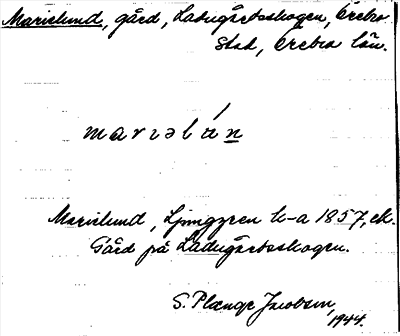 Marielund, gård, Ladugårdsskogen, Örebro
stad, Örebro län.
mariəlún
Marielund, Ljunggren h-a 1857, ek.
Gård på Ladugårdsskogen.
S. Plænge Jacobson,
1944.